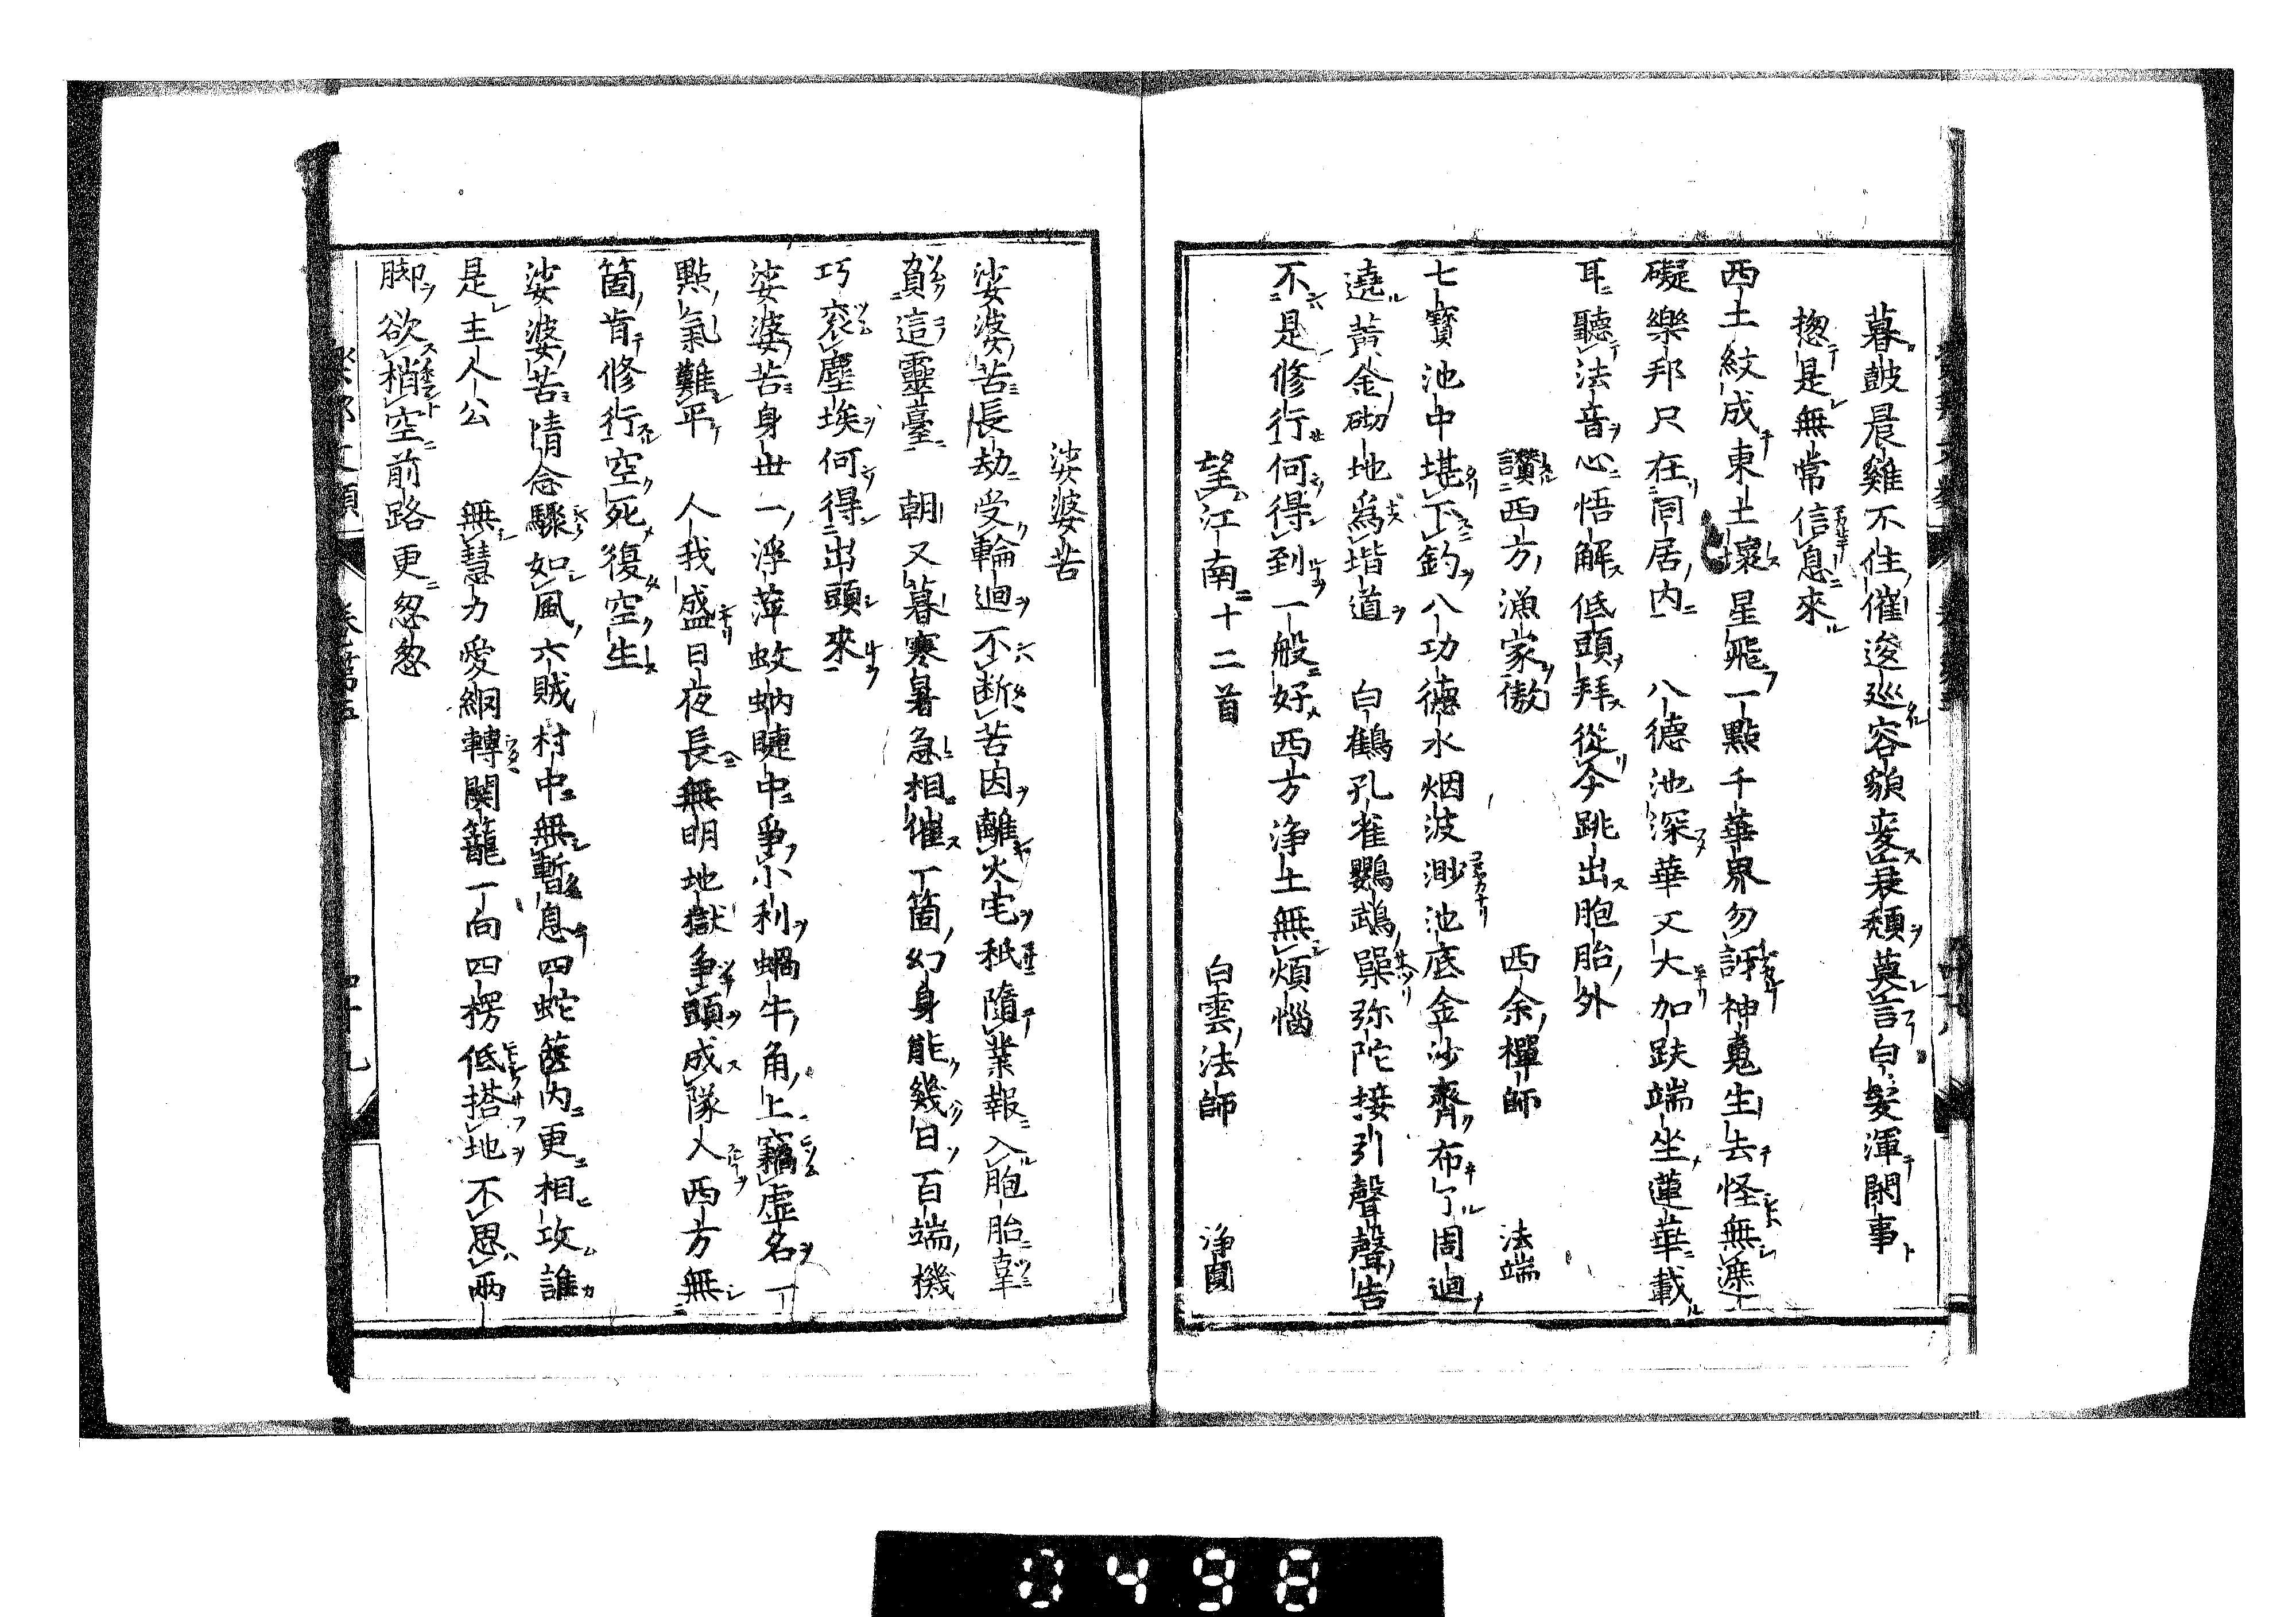 暮鼓晨雞不住催逡巡容貌変衰頽莫言白髮渾閑事
揔是無常信息來
西土紋成東土壞星飛一點千華界勿訝神鬼生去怪無遮
礙樂邦只在同居内　八德池深華又大加趺端坐蓮華載
耳聽法音心悟解低頭拜從今跳出胞胎外
讚西方漁家傲　西余禪師　法端
七寶池中堪下釣八功德水烟波渺池底金沙齊布了周迴
遶黃金砌地爲堦道　白鶴孔雀鸚鵡噪弥陀接引聲聲告
不是修行何得到一般好西方淨土無煩惱
望江南十二首　白雲法師　淨圓
娑婆苦
娑婆苦長劫受輪迴不断苦因離火宅秖隨業報入胞胎辜
負這靈臺　朝又暮寒暑急相催一箇幻身能幾日百端機
巧衮塵埃何得出頭來
娑婆苦身世一浮萍蚊蚋睫中爭小利蝸牛角上竊虛名一
點氣難平　人我盛日夜長無明地獄爭頭成隊入西方無一
箇肯修行空死復空生
娑婆苦情念驟如風六賊村中無暫息四蛇篋内更相攻誰
是主人公　無慧力愛網轉関籠一向四楞低搭地不思兩
脚欲梢空前路更忩忩
樂邦文類　卷第五　四十九
0498